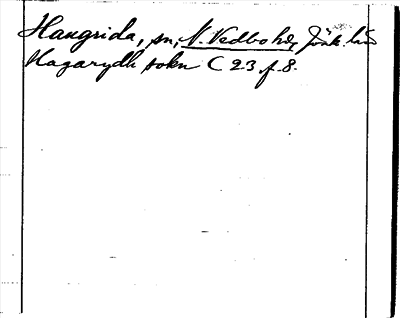 Haugrida, sn, N. Vedbo hd, Jönk. län
Hagarydh sokn C 23 f. 8.